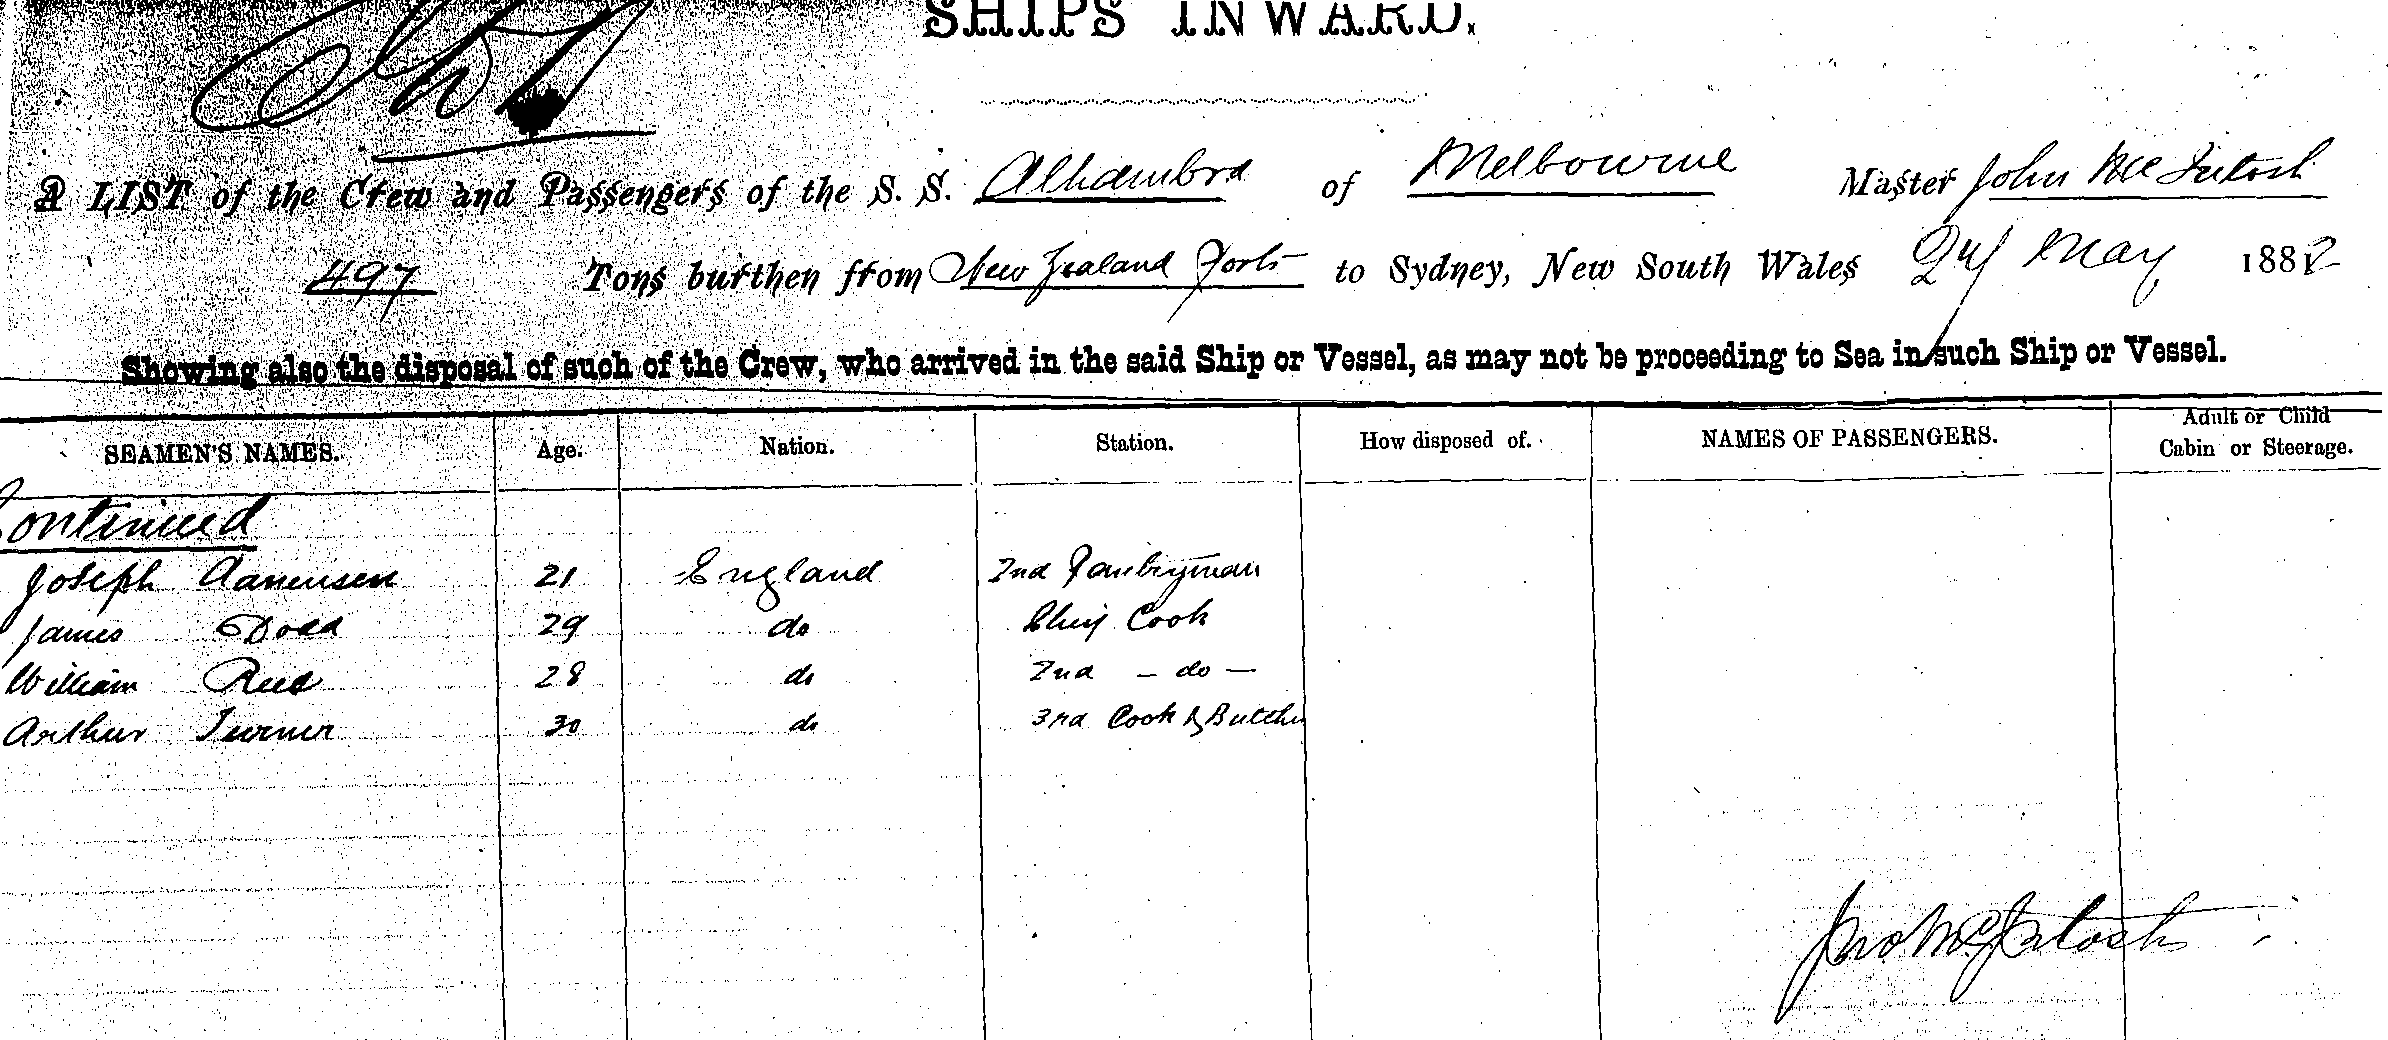 SHIPS INWARD.
A LIST of the Crew and Passengers of the S. S. Alhambra of Melbourne Master John McIntosh
497 Tons burthen from New Zealand Ports to Sydney, New South Wales May 1882
Showing also the disposal of such of the Crew, who arrived in the said Ship or Vessel, as may not be proceeding to Sea in such Ship or Vessel.
SEAMEN'S NAMES. Age. Nation. Station. How disposed of. NAMES OF PASSENGERS. Adult or Child Cabin or Steerage.
Continued
Joseph 21 England 2nd Pantryman
James Dodd 29 do Chief Cook
William Reed 28 do 2nd - do -
Arthur Turner 30 do 3rd Cook & Butcher
Jno McIntosh